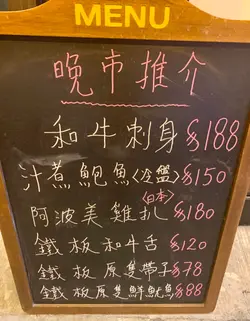 MENU
晚市推介
和牛刺身 $188
汁煮鮑魚〈冷盤〉$150
(日本)
阿波美雞扒 $180
鐵板和牛舌 $120
鐵板原隻帶子 $78
鐵板原隻鮮魷魚 $88